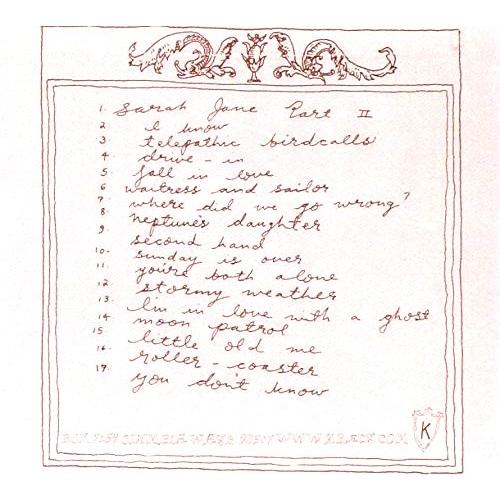 1. Sarah Jane Part II
2 I know
3 telepathic birdcalls
4. drive-in
5. fall in love
6 waitress and sailor
7. where did we go wrong?
8. neptune's daughter
9. second hand
10. sunday is over
11. you're both alone
12 stormy weather
13. I'm in love with a ghost
14 moon patrol
15 little old me
16. roller-coaster
17. you don't know
K
BOX 7154 OLYMPIA WA